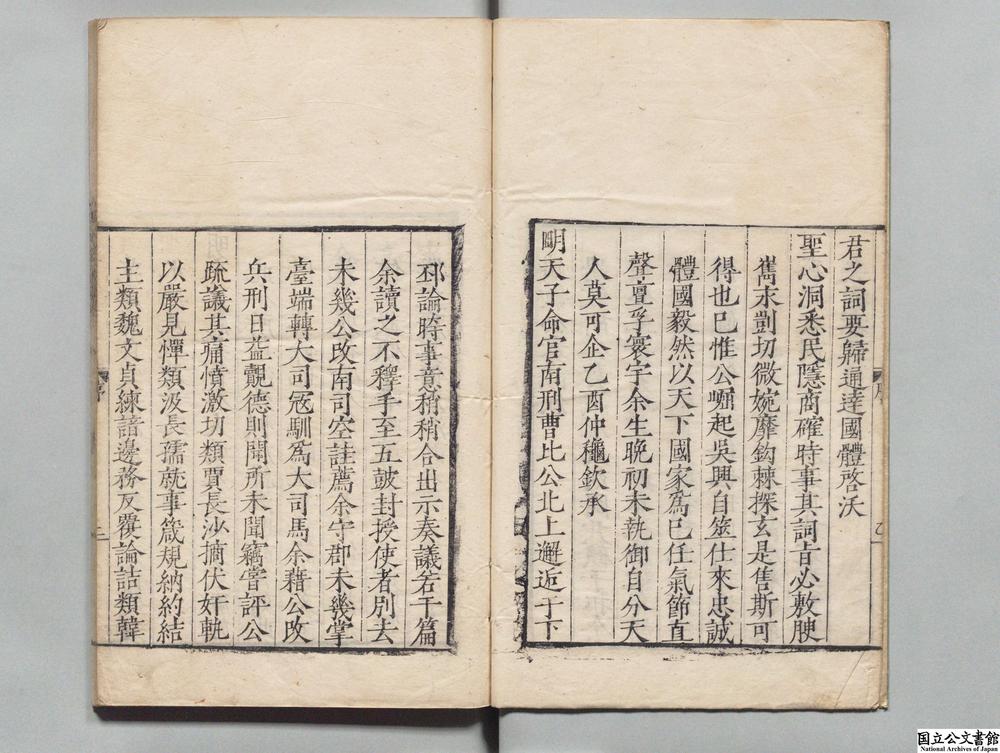 君之詞要歸通達國體啓沃
聖心洞悉民隱商確時事其詞旨必敷腴
雋永剴切微婉靡鈎棘探玄是售斯可
得也已惟公崛起吳興自筮仕來忠誠
體國毅然以天下國家爲己任氣節直
聲亶孚寰宇余生晩初未執御自分天
人莫可企乙酉仲穐欽承
明天子命官南刑曹比公北上邂逅于下
序
邳論時事意稍稍合出示奏議若干篇
余讀之不釋手至五鼓封授使者別去
未幾公改南司空註薦余守郡未幾掌
臺端轉大司冦馴爲大司馬余藉公改
兵刑日益覿德則聞所未聞竊嘗評公
疏議其痛憤激切類賈長沙摘伏奸軌
以嚴見憚類汲長孺就事箴規納約結
主類魏文貞練諳邊務反覆論詰類韓
序
三
国立公文書館
National Archives of Japan